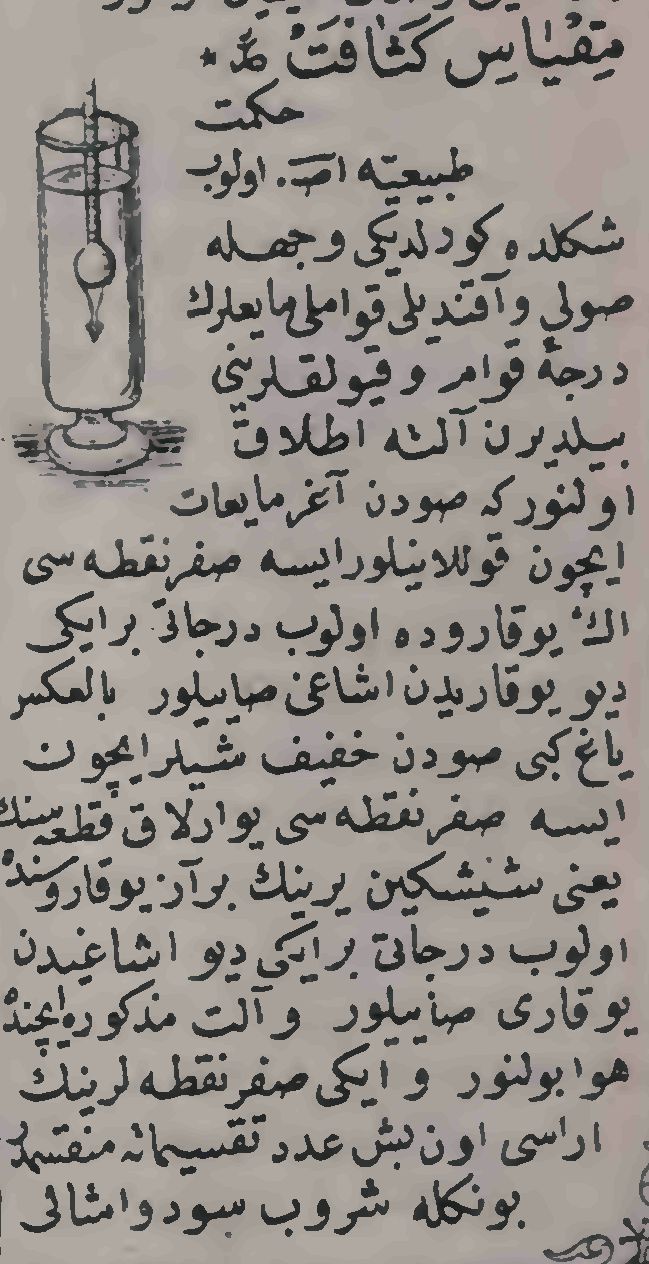 مِقْیَاسِ كَثَافَتْ
حكمت
طبیعیّه اصـ. اولوب
شكلده كورلدیكی وجهله
صولی وآقندیلی قواملی مایعلرك
درجهٔ قوام وقیولقلرینی
بیلدیرن آلته اطلاق
اولنور كه صودن آغر مایعات
ایچون قوللانیلور ایسه صفر نقطه سی
اڭ یوقاروده اولوب درجاتی بر ایكی
دیو یوقاریدن اشاغی صاییلور بالعكس
یاغ كبی صودن خفیف شیلر ایچون
ایسه صفر نقطه سی یوارلاق قطعه سنك
یعنی شیشكین یرینك بر آز یوقاروسنده
اولوب درجاتی بر ایكی دیو اشاغیدن
یوقاری صاییلور وآلت مذكوره ایچنده
هوا بولنور و ایكی صفر نقطه لرینك
اراسی اون بش عدد تقسیماته منقسمدر
بونكله شروب سود وامثالی